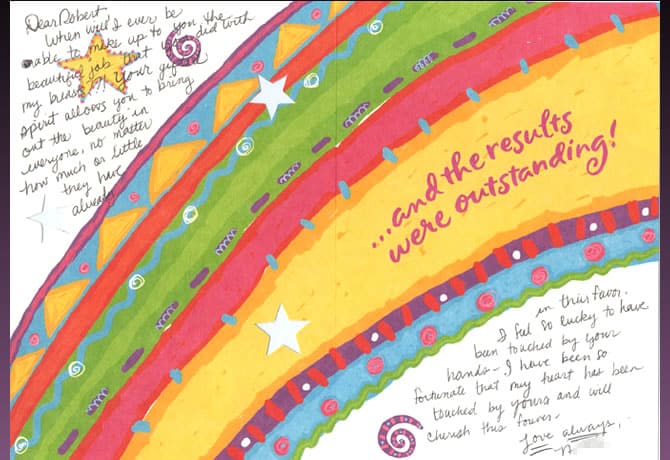 Dear Robert
When will I ever be
able to make up to you the
beautiful job that you did with
my breasts?! Your gifted
spirit allows you to bring
out the beauty in
everyone, no matter
how much or little
they have
already
...and the results
were outstanding!
in this favor.
I feel so lucky to have
been touched by your
hands - I have been so
fortunate that my heart has been
touched by yours and will
cherish this forever.
Love always,